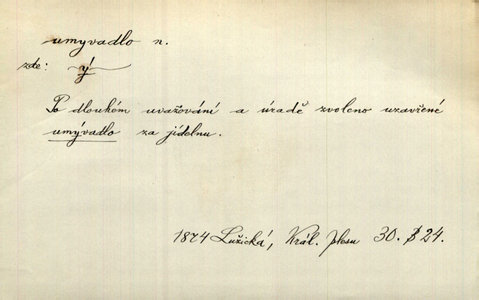 umyvadlo n.
zde: ý
Po dlouhém uvažování a úradě zvoleno uzavřené
umývadlo za jídelnu.
1874 Lužická, Král. plesu 30. 24.